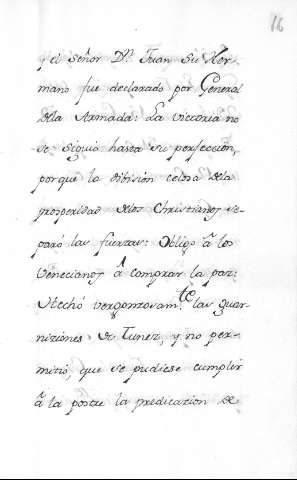 16
y el señor Dn. Juan su Her-
mano fue declarado por General
de la Armada: La victoria no
se siguió hasta su perfeccion,
porque la division celosa de la
prosperidad de los Christianos se-
paró las fuerzas: Obligó á los
Venecianos á comprar la paz:
Echó vergonzosamte las guar-
niziones de Tunez, y no per-
mitió, que se pudiese cumplir
á la postre la predicazion de